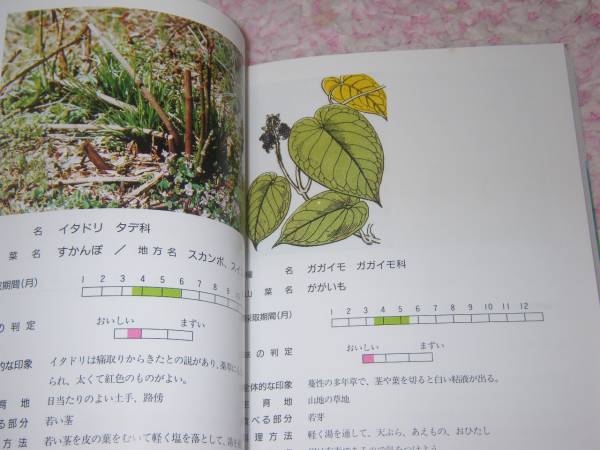 名 イタドリ タデ科
菜 名 すかんぽ / 地方名 スカンポ、スイ
取期間(月) 1 2 3 4 5 6 7 8 9
の 判定 おいしい まずい
的な印象 イタドリは痛取りからきたとの説があり、薬草に
られ、太くて紅色のものがよい。
育 地 日当たりのよい土手、路傍
べる部分 若い茎
方 法 若い茎を皮の葉をむいて軽く塩を落として、
名 ガガイモ ガガイモ科
山 菜 名 ががいも
採取期間(月) 1 2 3 4 5 6 7 8 9 10 11 12
の 判定 おいしい まずい
全体的な印象 蔓性の多年草で、茎や葉を切ると白い粘液が出る。
生 育 地 山地の草地
食べる部分 若芽
料 理 方 法 軽く湯を通して、天ぷら、あえもの、おひたし